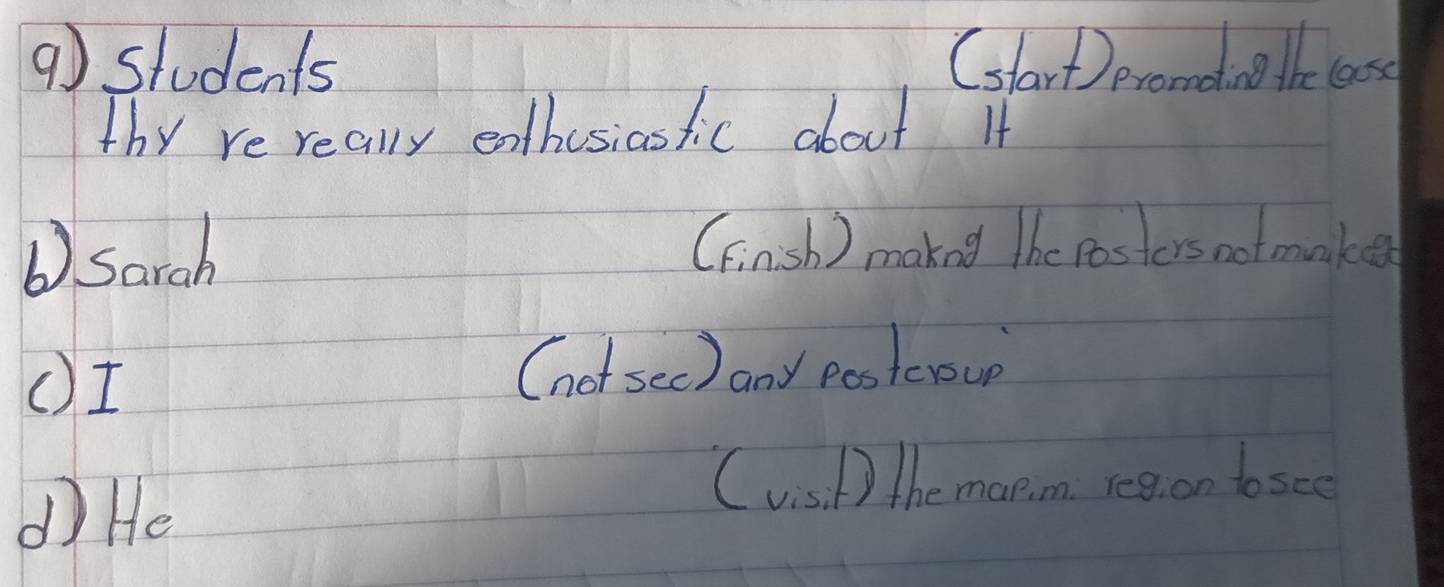 a) Students (start) promoting the cause
thy re really enthusiastic about It
b) Sarah (Finish) makng the Posters not
c) I (not see) any posters up
d) He (visit) the mapimi region to see